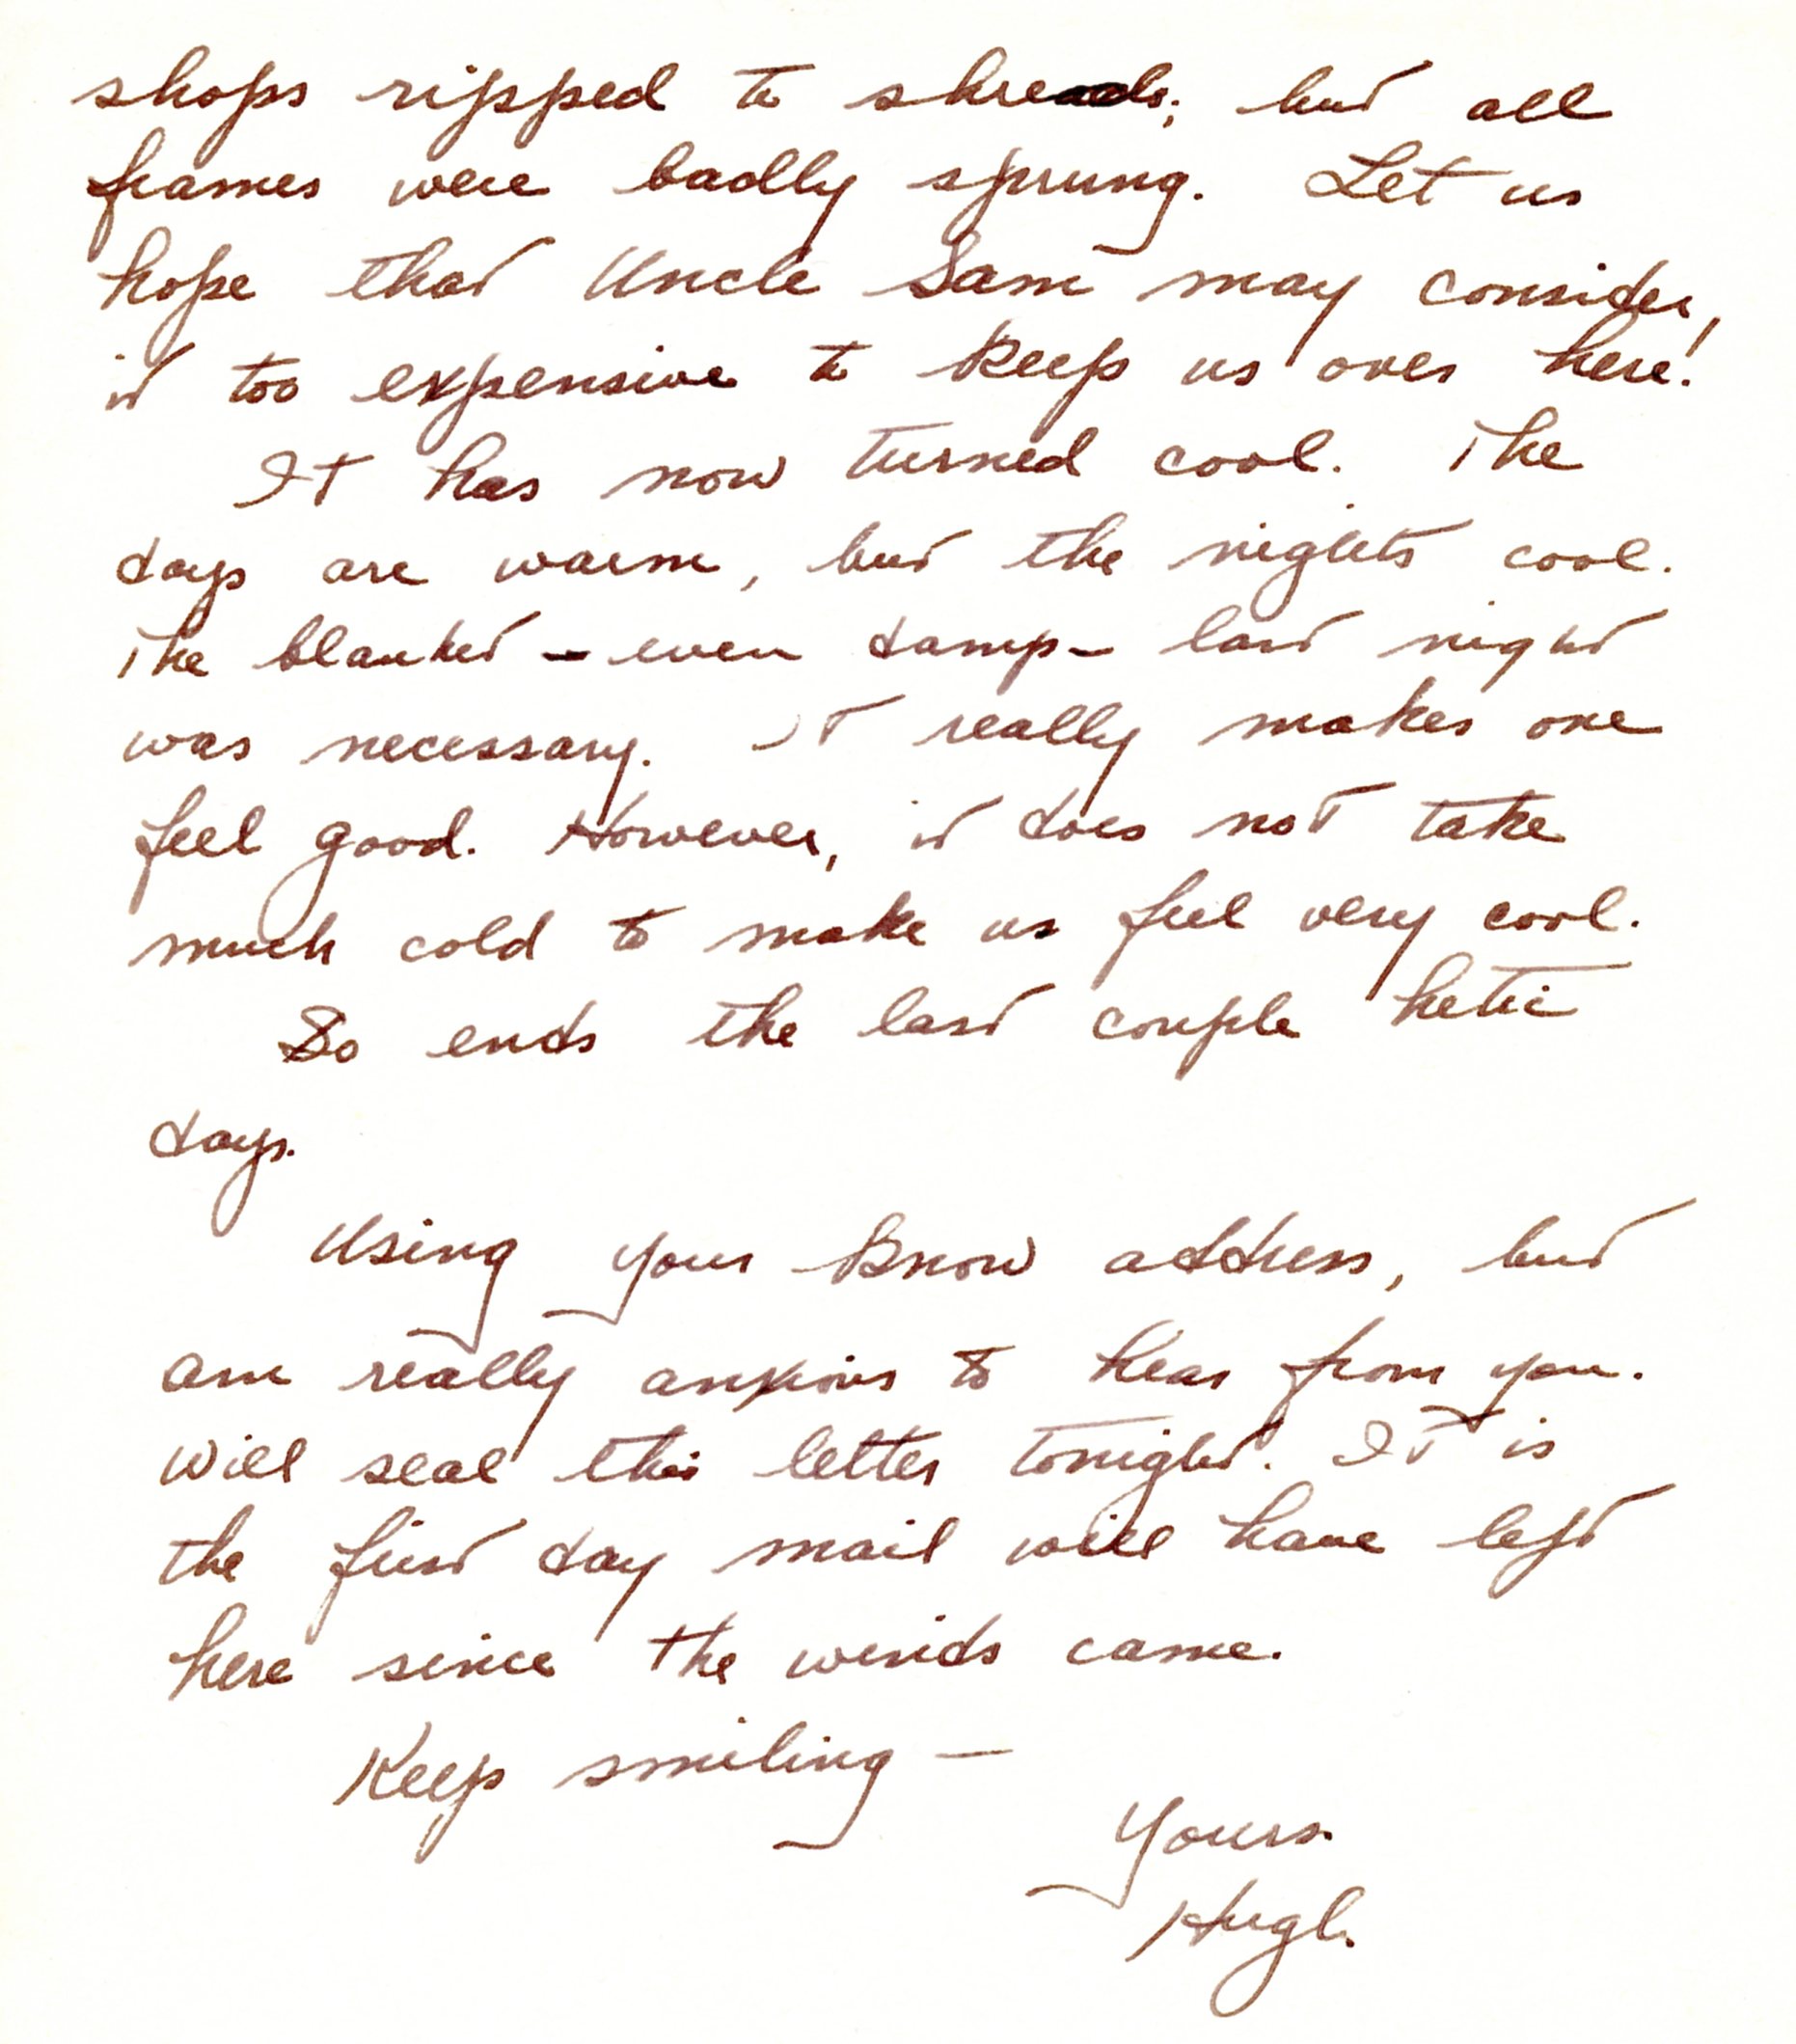 shops ripped to shreads; but all
frames were badly sprung. Let us
hope that Uncle Sam may consider,
it too expensive to keep us over here!
It has now turned cool. The
days are warm, but the nights cool.
The blanket – even damp – last night
was necessary. It really makes one
feel good. However, it does not take
much cold to make us feel very cool.
So ends the last couple hetic
days.
Using your know address, but
am really anxious to hear from you.
Will seal this letter tonight. It is
the first day mail will have left
here since the winds came.
Keep smiling –
Yours.
Hugh.